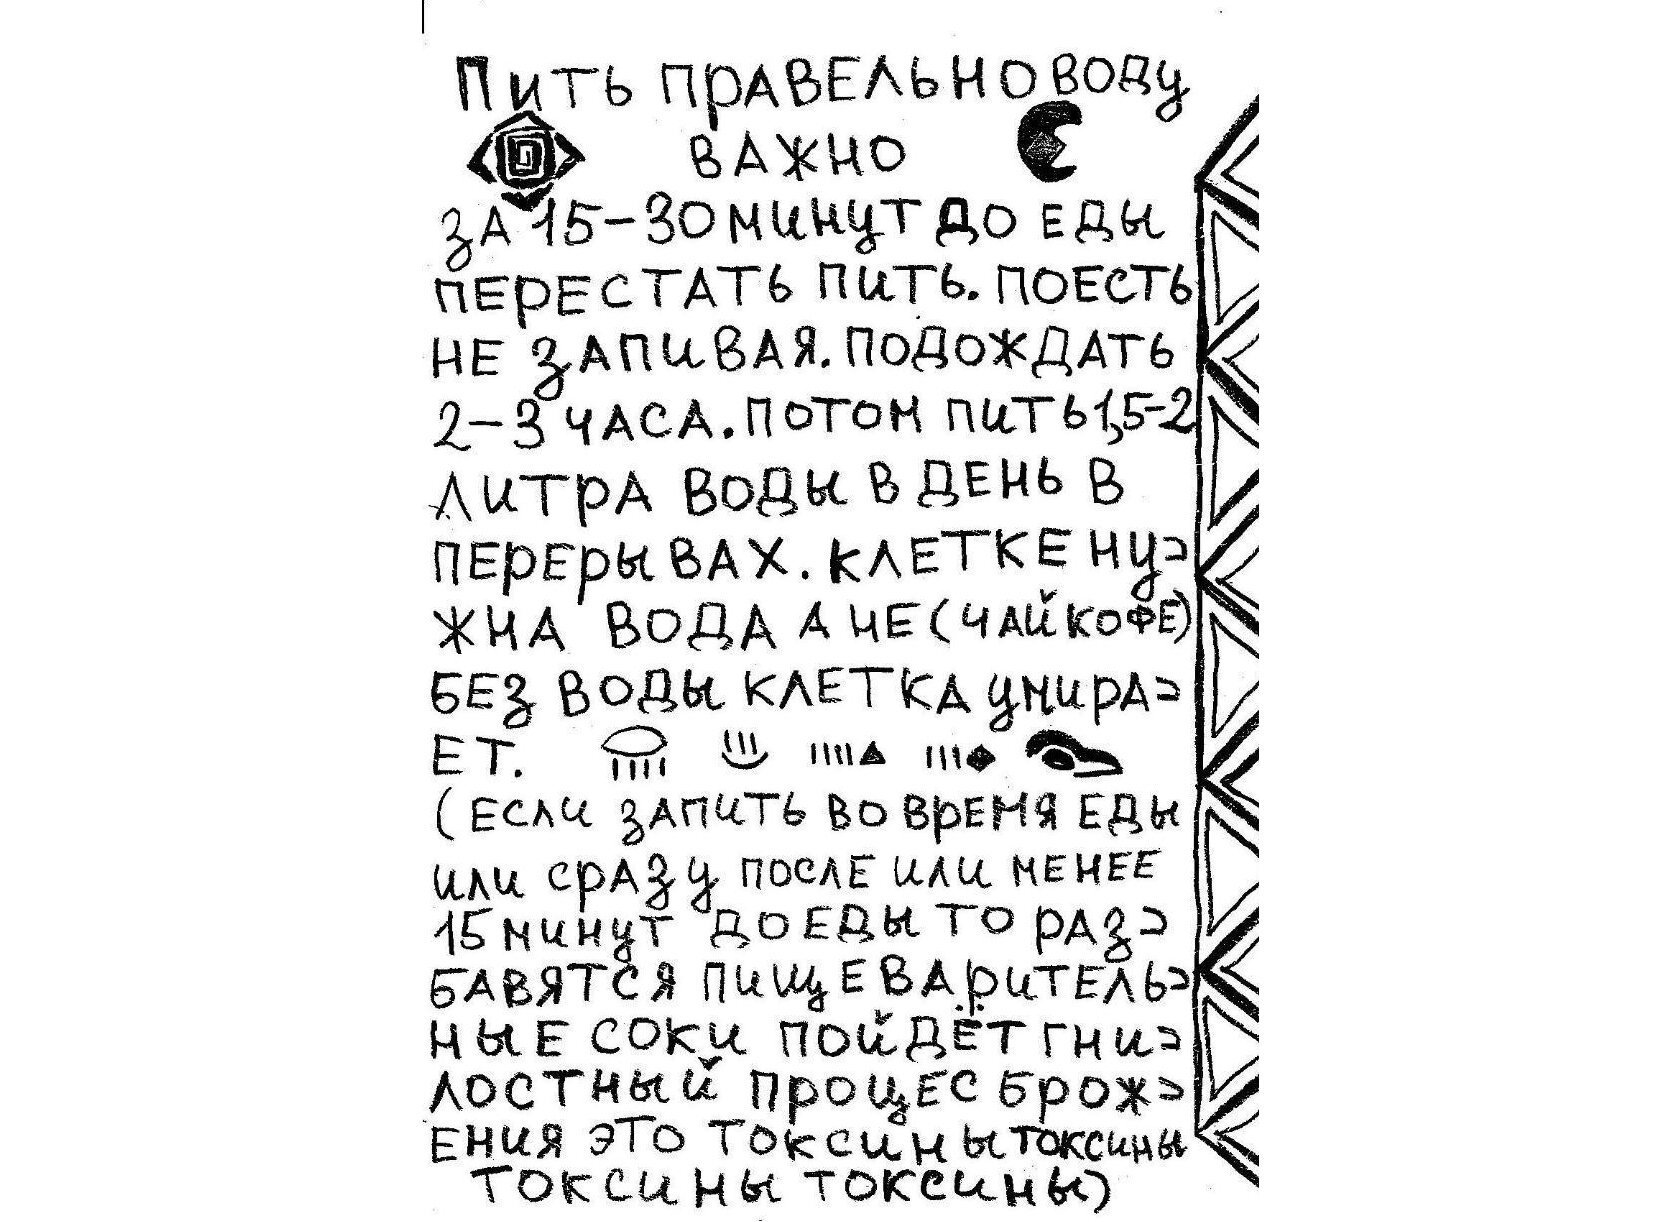 ПИТЬ ПРАВЕЛЬНО ВОДУ
ВАЖНО
ЗА 15-30 МИНУТ ДО ЕДЫ
ПЕРЕСТАТЬ ПИТЬ. ПОЕСТЬ
НЕ ЗАПИВАЯ. ПОДОЖДАТЬ
2-3 ЧАСА. ПОТОМ ПИТЬ 1,5-2
ЛИТРА ВОДЫ В ДЕНЬ В
ПЕРЕРЫВАХ. КЛЕТКЕ НУ=
ЖНА ВОДА А НЕ (ЧАЙ КОФЕ)
БЕЗ ВОДЫ КЛЕТКА УМИРА=
ЕТ.
(ЕСЛИ ЗАПИТЬ ВО ВРЕМЯ ЕДЫ
ИЛИ СРАЗУ ПОСЛЕ ИЛИ МЕНЕЕ
15 МИНУТ ДО ЕДЫ ТО РАЗ=
БАВЯТСЯ ПИЩЕВАРИТЕЛЬ=
НЫЕ СОКИ ПОЙДЁТ ГНИ=
ЛОСТНЫЙ ПРОЦЕС БРОЖ=
ЕНИЯ ЭТО ТОКСИНЫ ТОКСИНЫ
ТОКСИНЫ ТОКСИНЫ)